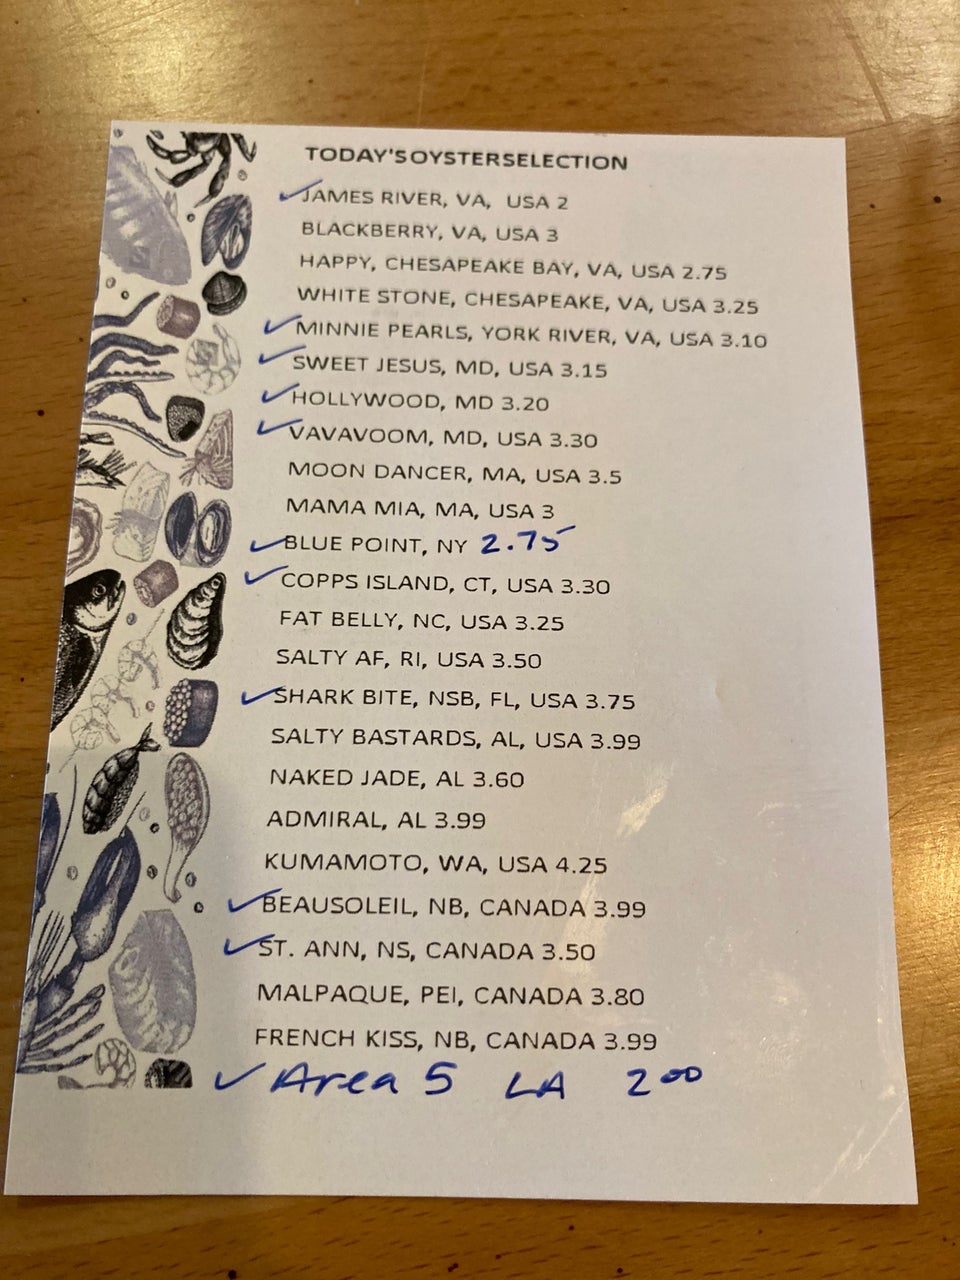 TODAY'SOYSTERSELECTION
✓JAMES RIVER, VA, USA 2
BLACKBERRY, VA, USA 3
HAPPY, CHESAPEAKE BAY, VA, USA 2.75
WHITE STONE, CHESAPEAKE, VA, USA 3.25
✓MINNIE PEARLS, YORK RIVER, VA, USA 3.10
✓SWEET JESUS, MD, USA 3.15
✓HOLLYWOOD, MD 3.20
✓VAVAVOOM, MD, USA 3.30
MOON DANCER, MA, USA 3.5
MAMA MIA, MA, USA 3
✓BLUE POINT, NY 2.75
✓COPPS ISLAND, CT, USA 3.30
FAT BELLY, NC, USA 3.25
SALTY AF, RI, USA 3.50
✓SHARK BITE, NSB, FL, USA 3.75
SALTY BASTARDS, AL, USA 3.99
NAKED JADE, AL 3.60
ADMIRAL, AL 3.99
KUMAMOTO, WA, USA 4.25
✓BEAUSOLEIL, NB, CANADA 3.99
✓ST. ANN, NS, CANADA 3.50
MALPAQUE, PEI, CANADA 3.80
FRENCH KISS, NB, CANADA 3.99
✓Area 5 LA 2 00